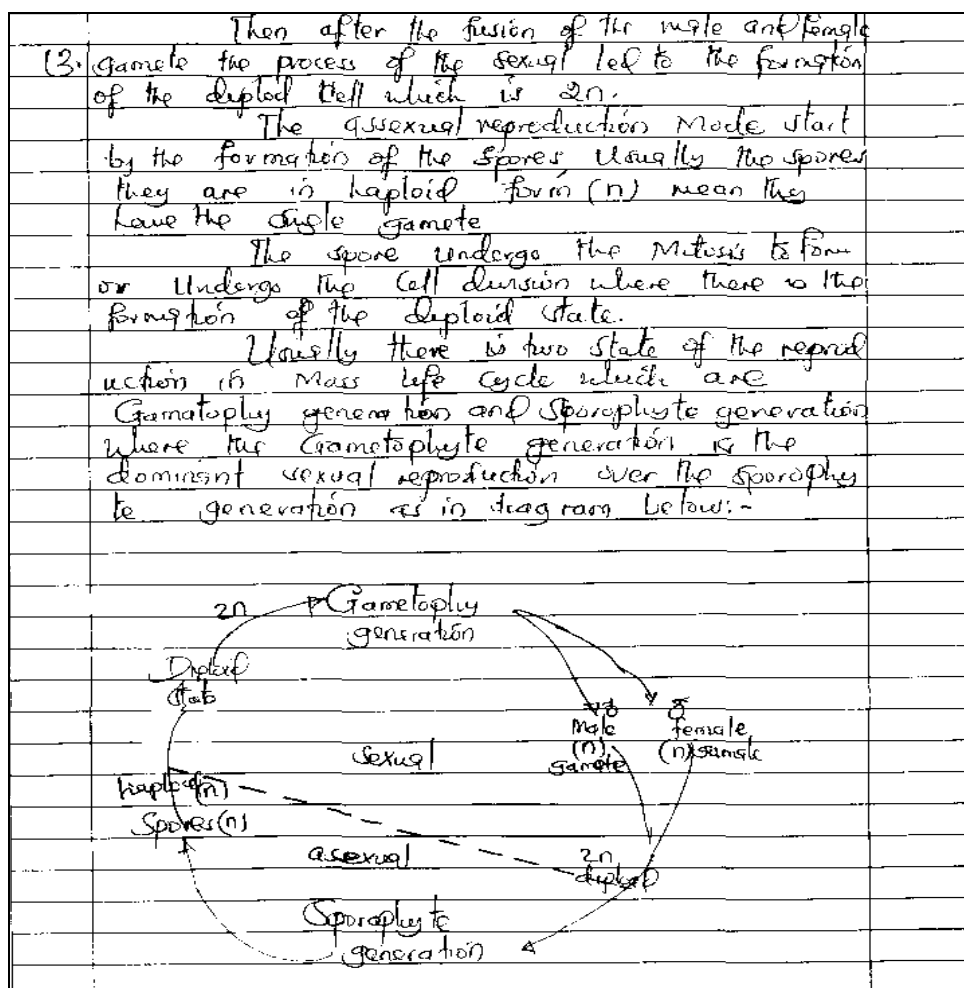 Then after the fusion of the male and female
13. gamete the process of the sexual led to the formation
of the diploid Cell which is 2n.
The assexual reproduction Mode start
by the formation of the spores Usually the spores
they are in haploid form (n) mean they
have the single gamete
The spore undergo the Mitosis to form
or Undergo the Cell division where there is the
formation of the diploid state.
Usually there is two state of the reprod
uction in Mass life cycle which are
Gamatophy generation and Sporophyte generation
where the Gametophyte generation is the
dominant sexual reproduction over the sporophy
te generation as in diagram below:-
2n
Gametophy
generation
Diploid
state
Male
(n)
gamete
female
(n) gamate
sexual
haploid(n)
Spores(n)
asexual
2n
diploid
Sporophyte
generation